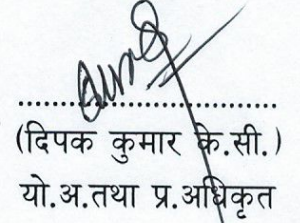 (दिपक कुमार के.सी.)
यो.अ.तथा प्र.अधिकृत